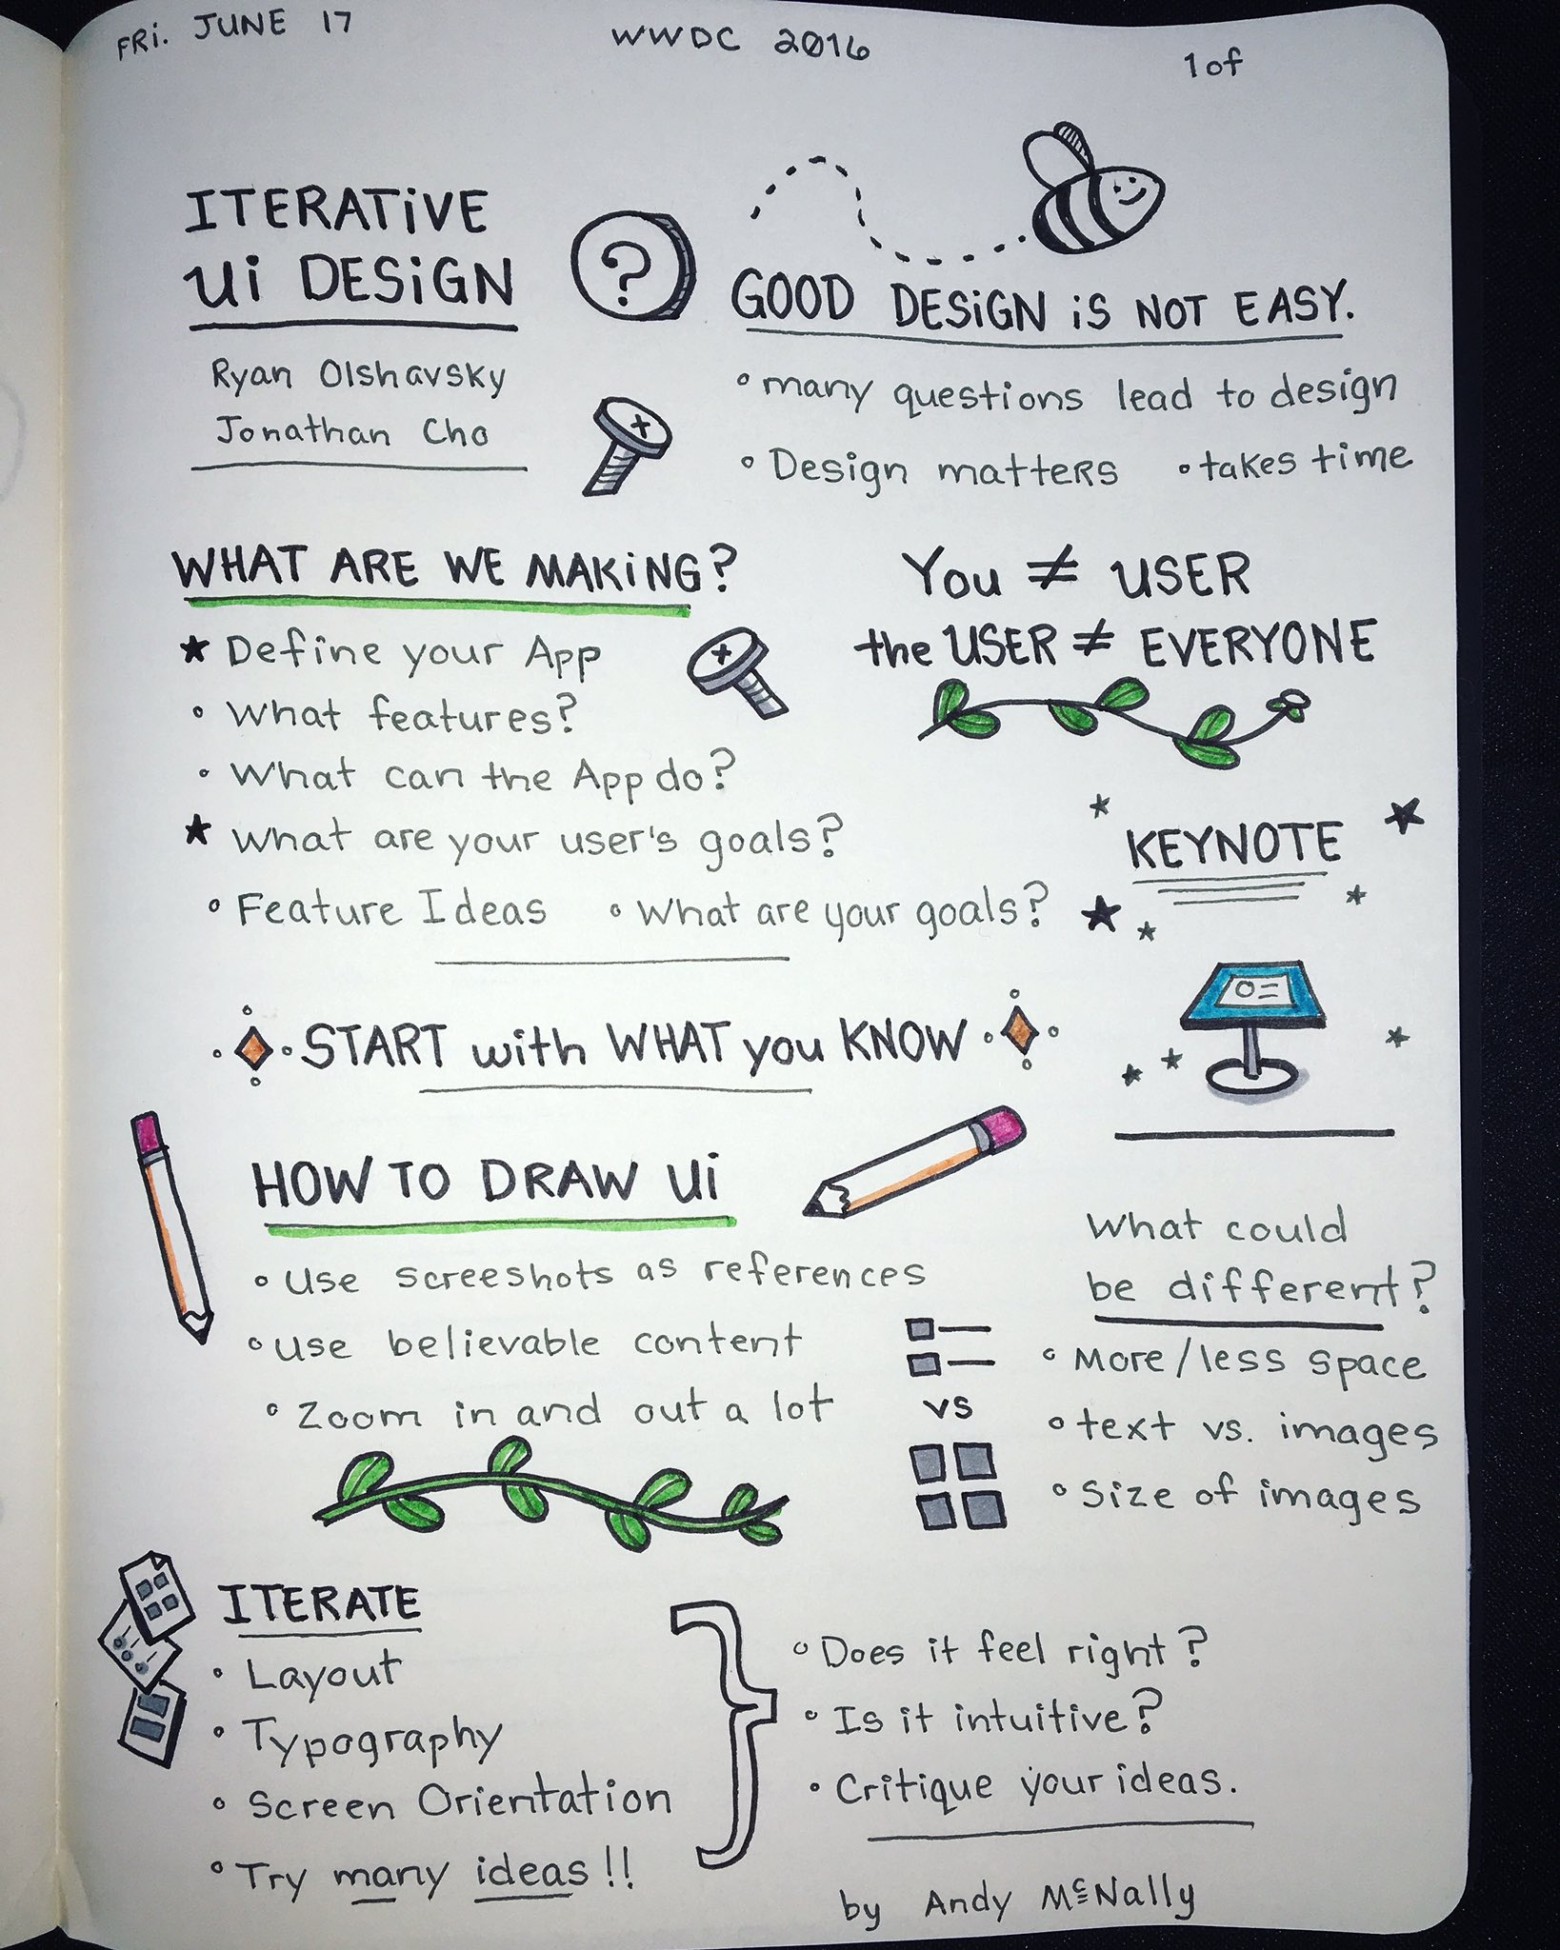 FRi. JUNE 17
WWDC 2016
1 of
ITERATiVE
Ui DESiGN
Ryan Olshavsky
Jonathan Cho
?
GOOD DESiGN iS NOT EASY.
many questions lead to design
Design matters
takes time
WHAT ARE WE MAKiNG?
Define your App
What features?
What can the App do?
What are your user's goals?
Feature Ideas
What are your goals?
You ≠ USER
the USER ≠ EVERYONE
KEYNOTE
START with WHAT you KNOW
HOW TO DRAW Ui
Use screeshots as references
Use believable content
Zoom in and out a lot
What could
be different?
vs
More/less space
text vs. images
Size of images
ITERATE
Layout
Typography
Screen Orientation
Try many ideas!!
Does it feel right?
Is it intuitive?
Critique your ideas.
by Andy McNally